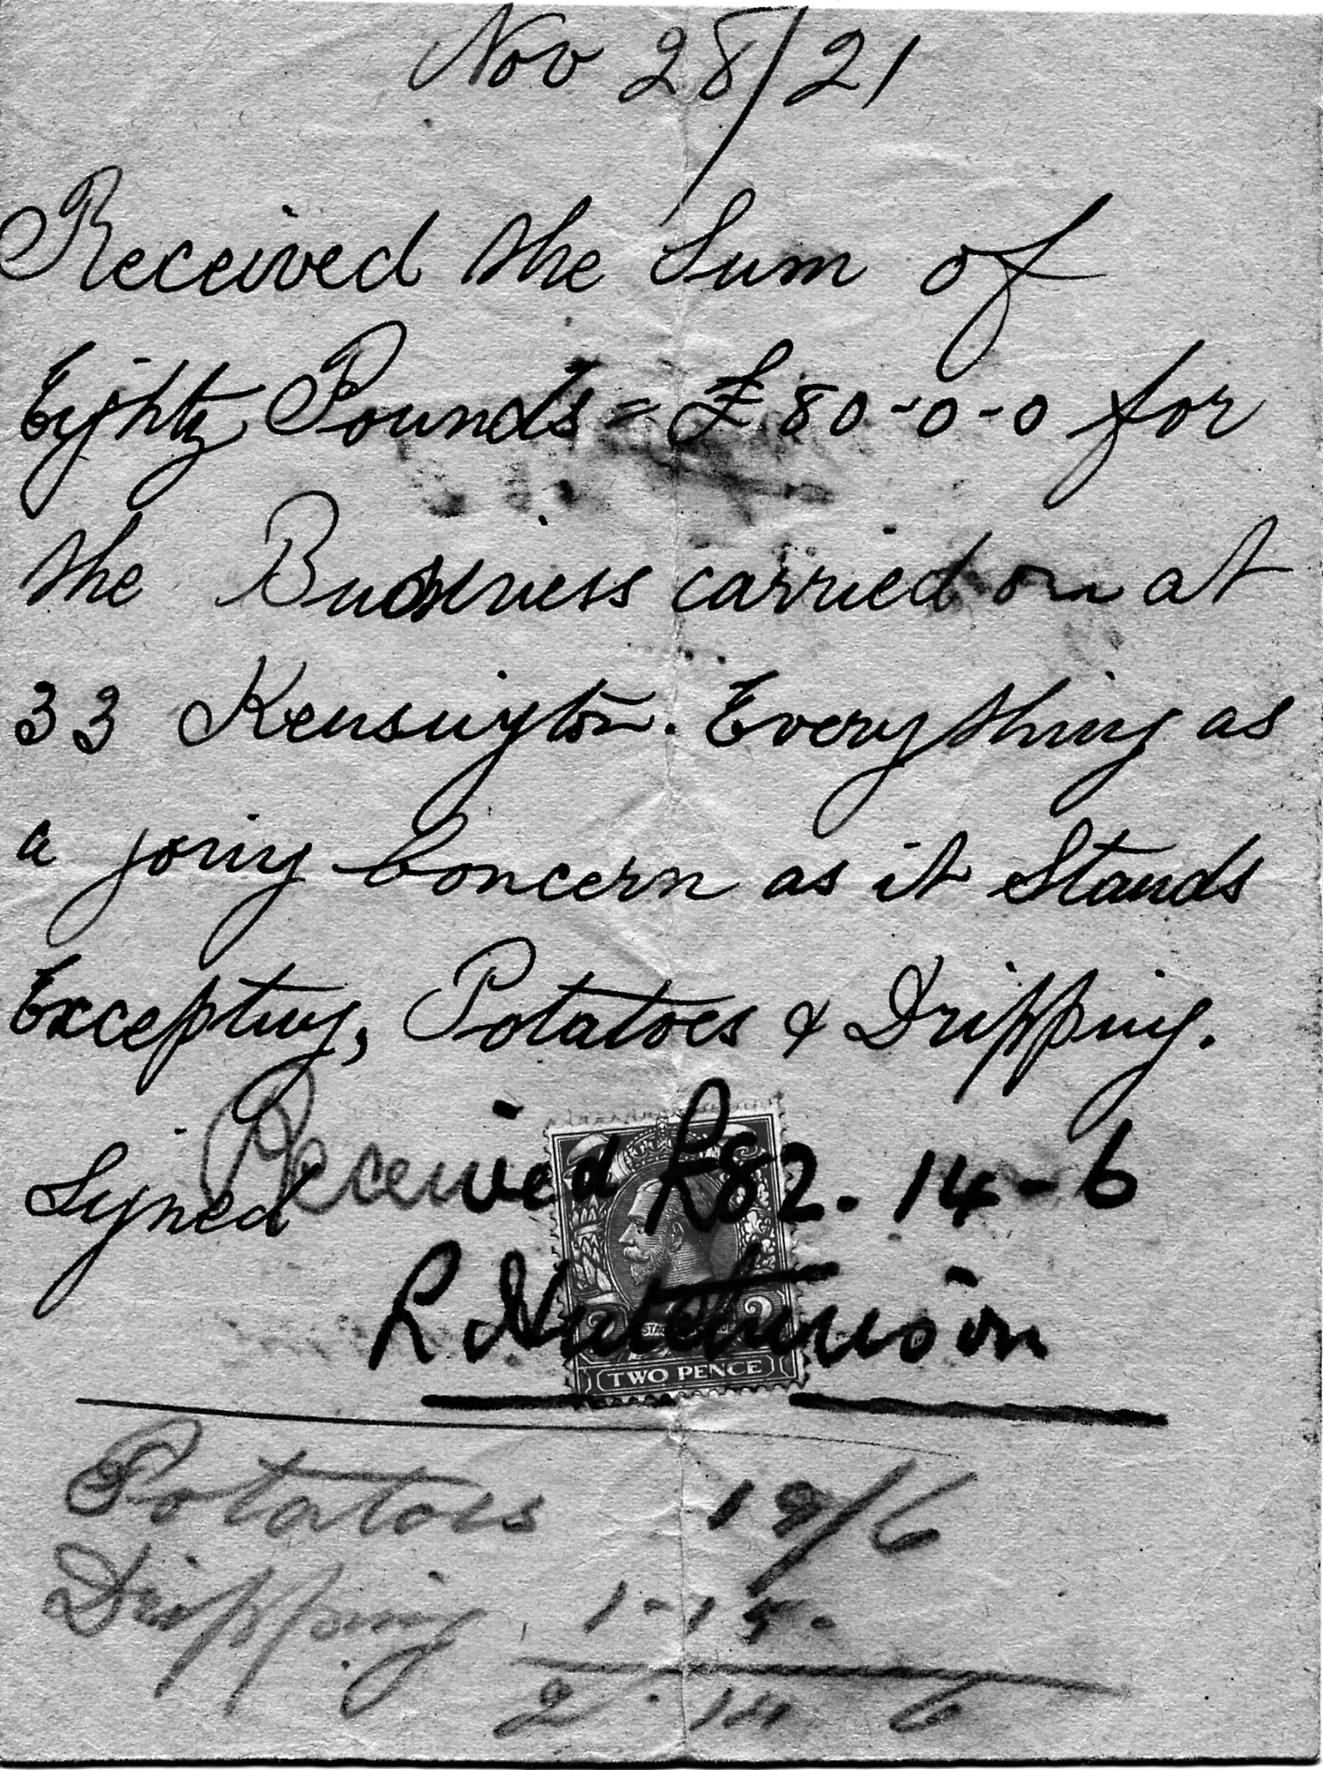 Nov 28/21
Received the Sum of
Eighty Pounds = £80-0-0 for
the Business carried on at
33 Kensington. Everything as
a going Concern as it Stands
Excepting, Potatoes & Dripping.
Received £82. 14-6
Signed
R Hutchinson
TWO PENCE
Potatoes 19/6
Dripping 1-15-
2-14 6